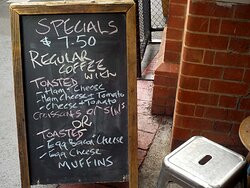 SPECIALS
$ 7.50
REGULAR
COFFEE
with
TOASTED
- Ham + Cheese
- Ham Cheese + Tomato
- Cheese + Tomato
Croissants or
OR
TOASTED
- Egg Bacon + Cheese
- Egg Cheese
MUFFINS